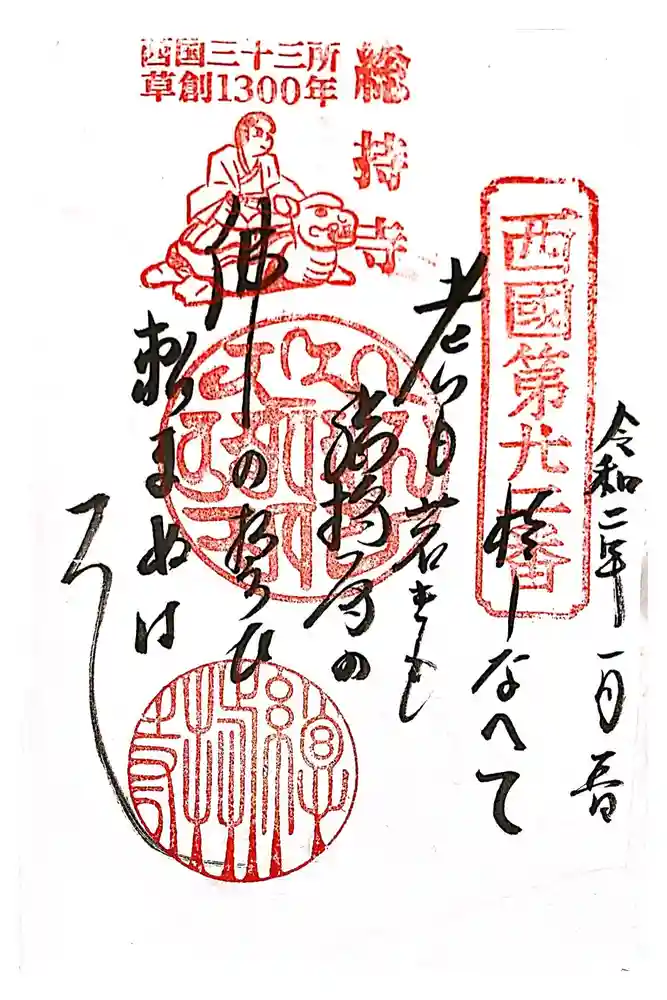 西国三十三所
草創1300年
総持寺
西國第廿二番
令和二年一月
於しなへて
老いも若きも
総持寺の
佛の誓ひ
頼まぬは
なし
總持寺